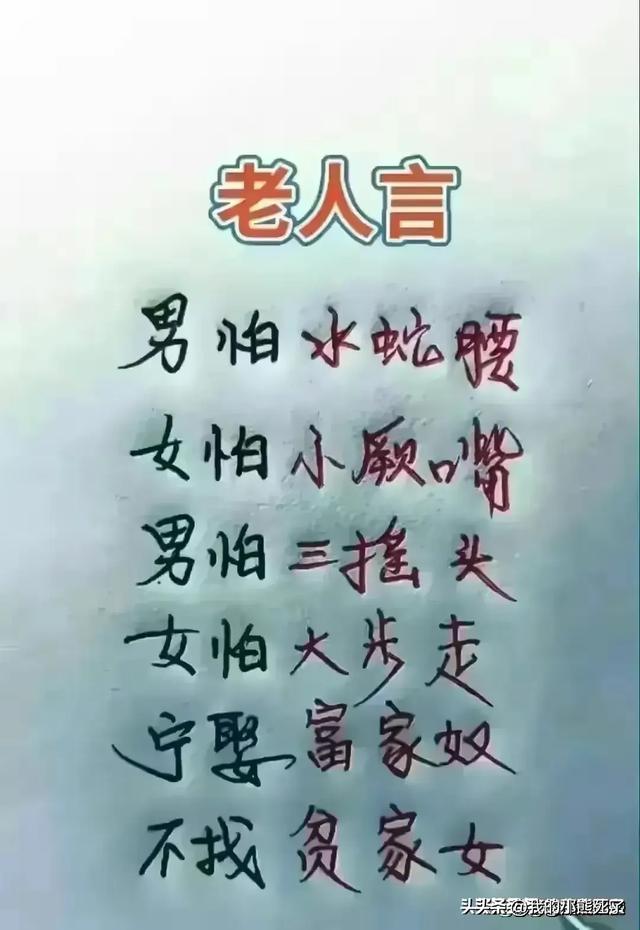 老人言
男怕水蛇腰
女怕小厥嘴
男怕三摇头
女怕大步走
宁娶富家奴
不找贫家女
头条